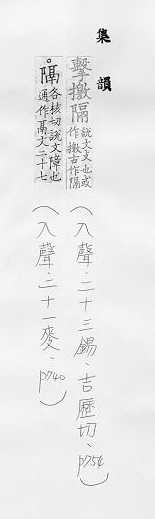 集韻
擊撽隔
說文攴也或
作撽古作隔
(入聲．二十三錫．吉歷切．p754)
。隔
各核切說文障也
通作鬲文二十七
(入聲．二十一麥．p740)